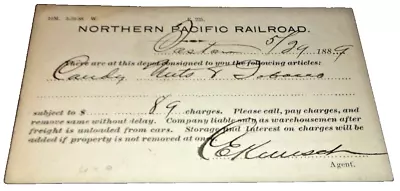 NORTHERN PACIFIC RAILROAD.
5/29 1889
There are at this depot consigned to you the following articles:
Candy Nuts & Tobacco
subject to $ 89 charges. Please call, pay charges, and
remove same without delay. Company liable only as warehousemen after
freight is unloaded from cars. Storage and Interest on charges will be
added if property is not removed at once.
Agent.